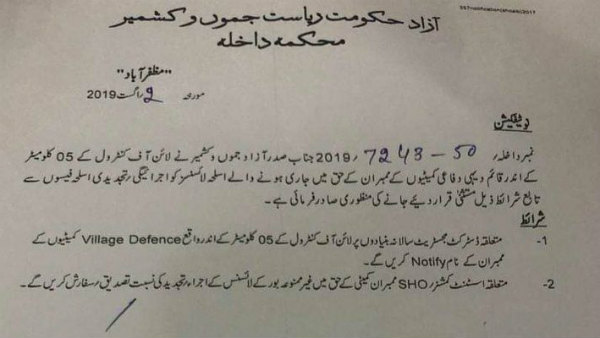 557notification(shoaib)/2017
آزاد حکومت ریاست جموں و کشمیر
محکمہ داخلہ
"مظفرآباد"
مورخہ 2 اگست 2019
نوٹیفکیشن
نمبر داخلہ / 50 – 7243 / 2019، جناب صدر آزاد جموں و کشمیر نے لائن آف کنٹرول کے 05 کلومیٹر
کے اندر قائم دیہی دفاعی کمیٹیوں کے ممبران کے حق میں جاری ہونے والے اسلحہ لائسنسز کو اجرائیگی / تجدیدی اسلحہ فیسوں سے
تابع شرائط ذیل مستثنیٰ قرار دیئے جانے کی منظوری صادر فرمائی ہے۔
شرائط
1- متعلقہ ڈسٹرکٹ مجسٹریٹ سالانہ بنیادوں پر لائن آف کنٹرول کے 05 کلومیٹر کے اندر واقع Village Defence کمیٹیوں کے
ممبران کے نام Notify کریں گے۔
2- متعلقہ اسسٹنٹ کمشنر / SHO ممبران کمیٹی کے حق میں غیر ممنوعہ بور کے لائسنس کے اجراء / تجدید کی نسبت تصدیق / سفارش کریں گے۔